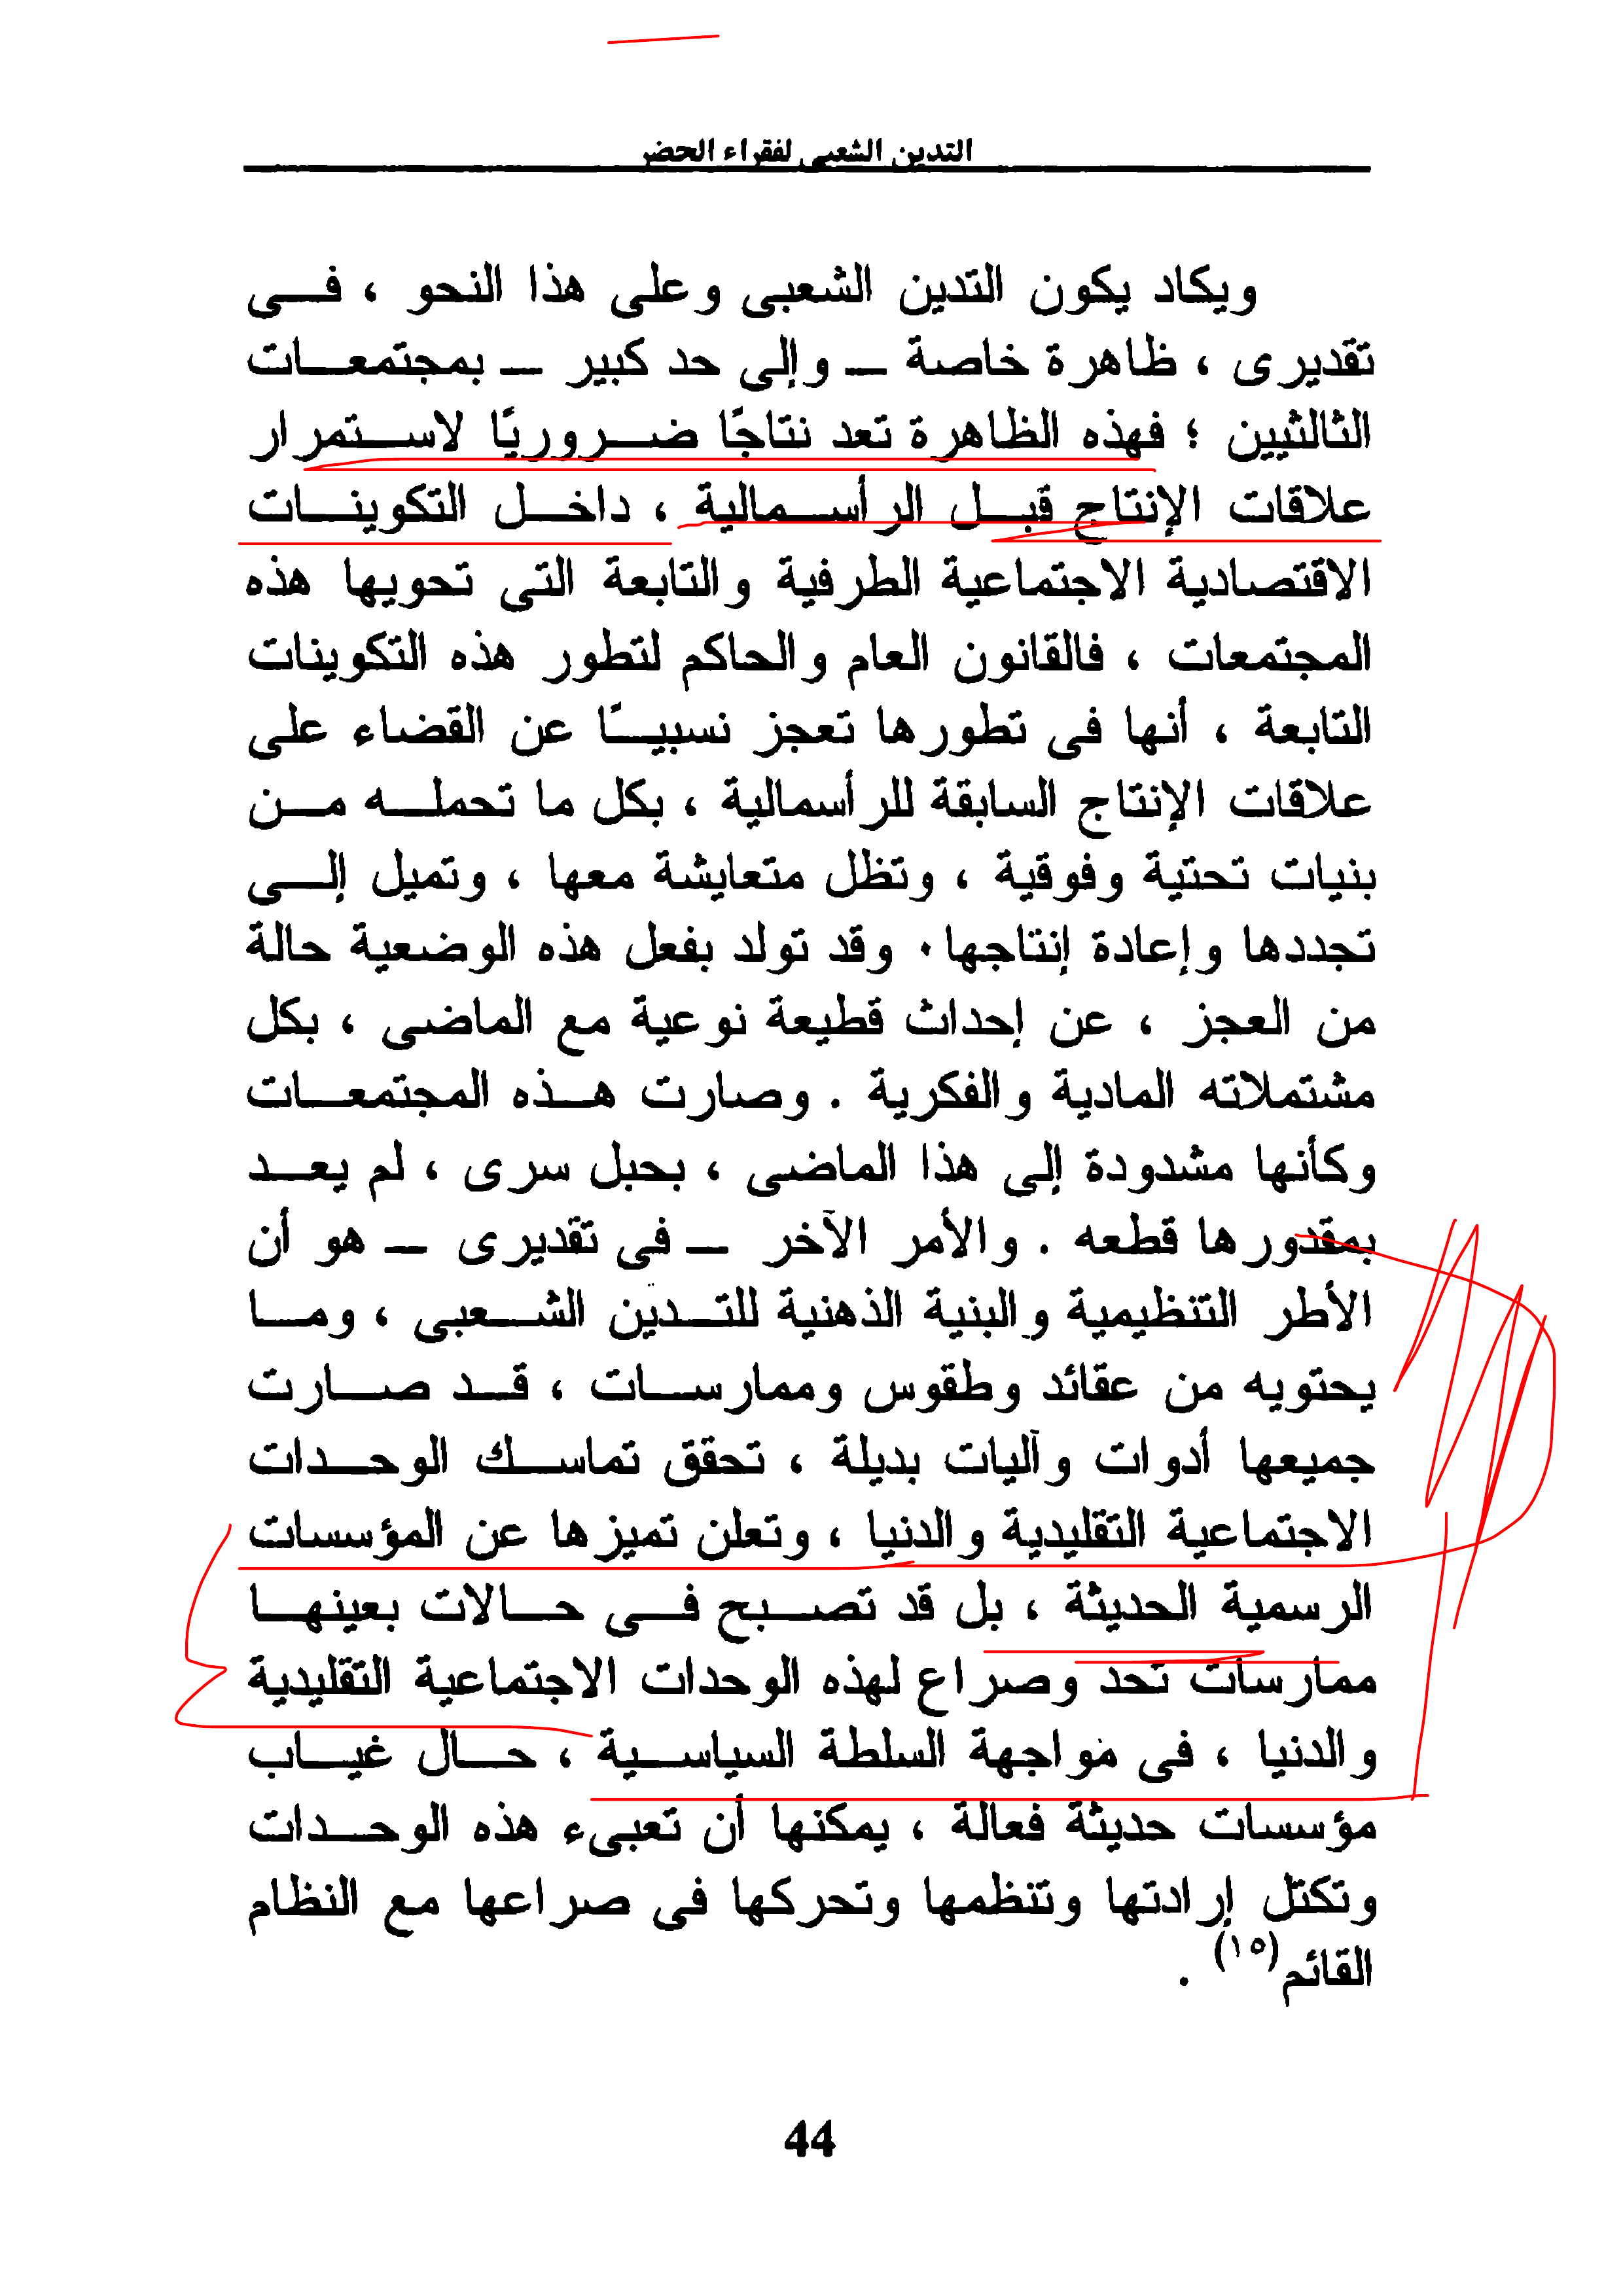 التدين الشعبى لفقراء الحضر
ويكاد يكون التدين الشعبى وعلى هذا النحو ، فى
تقديرى ، ظاهرة خاصة ـ وإلى حد كبير ـ بمجتمعات
الثالثيين ؛ فهذه الظاهرة تعد نتاجًا ضروريًا لاستمرار
علاقات الإنتاج قبل الرأسمالية ، داخل التكوينات
الاقتصادية الاجتماعية الطرفية والتابعة التى تحويها هذه
المجتمعات ، فالقانون العام والحاكم لتطور هذه التكوينات
التابعة ، أنها فى تطورها تعجز نسبيًا عن القضاء على
علاقات الإنتاج السابقة للرأسمالية ، بكل ما تحمله من
بنيات تحتية وفوقية ، وتظل متعايشة معها ، وتميل إلى
تجددها وإعادة إنتاجها٠ وقد تولد بفعل هذه الوضعية حالة
من العجز ، عن إحداث قطيعة نوعية مع الماضى ، بكل
مشتملاته المادية والفكرية . وصارت هذه المجتمعات
وكأنها مشدودة إلى هذا الماضى ، بحبل سرى ، لم يعد
بمقدورها قطعه . والأمر الآخر ـ فى تقديرى ـ هو أن
الأطر التنظيمية والبنية الذهنية للتدين الشعبى ، وما
يحتويه من عقائد وطقوس وممارسات ، قد صارت
جميعها أدوات وآليات بديلة ، تحقق تماسك الوحدات
الاجتماعية التقليدية والدنيا ، وتعلن تميزها عن المؤسسات
الرسمية الحديثة ، بل قد تصبح فى حالات بعينها
ممارسات تحد وصراع لهذه الوحدات الاجتماعية التقليدية
والدنيا ، فى مواجهة السلطة السياسية ، حال غياب
مؤسسات حديثة فعالة ، يمكنها أن تعبىء هذه الوحدات
وتكتل إرادتها وتنظمها وتحركها فى صراعها مع النظام
القائم(١٥) .
44